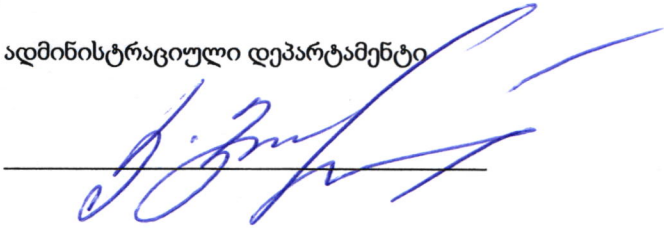 ადმინისტრაციული დეპარტამენტი